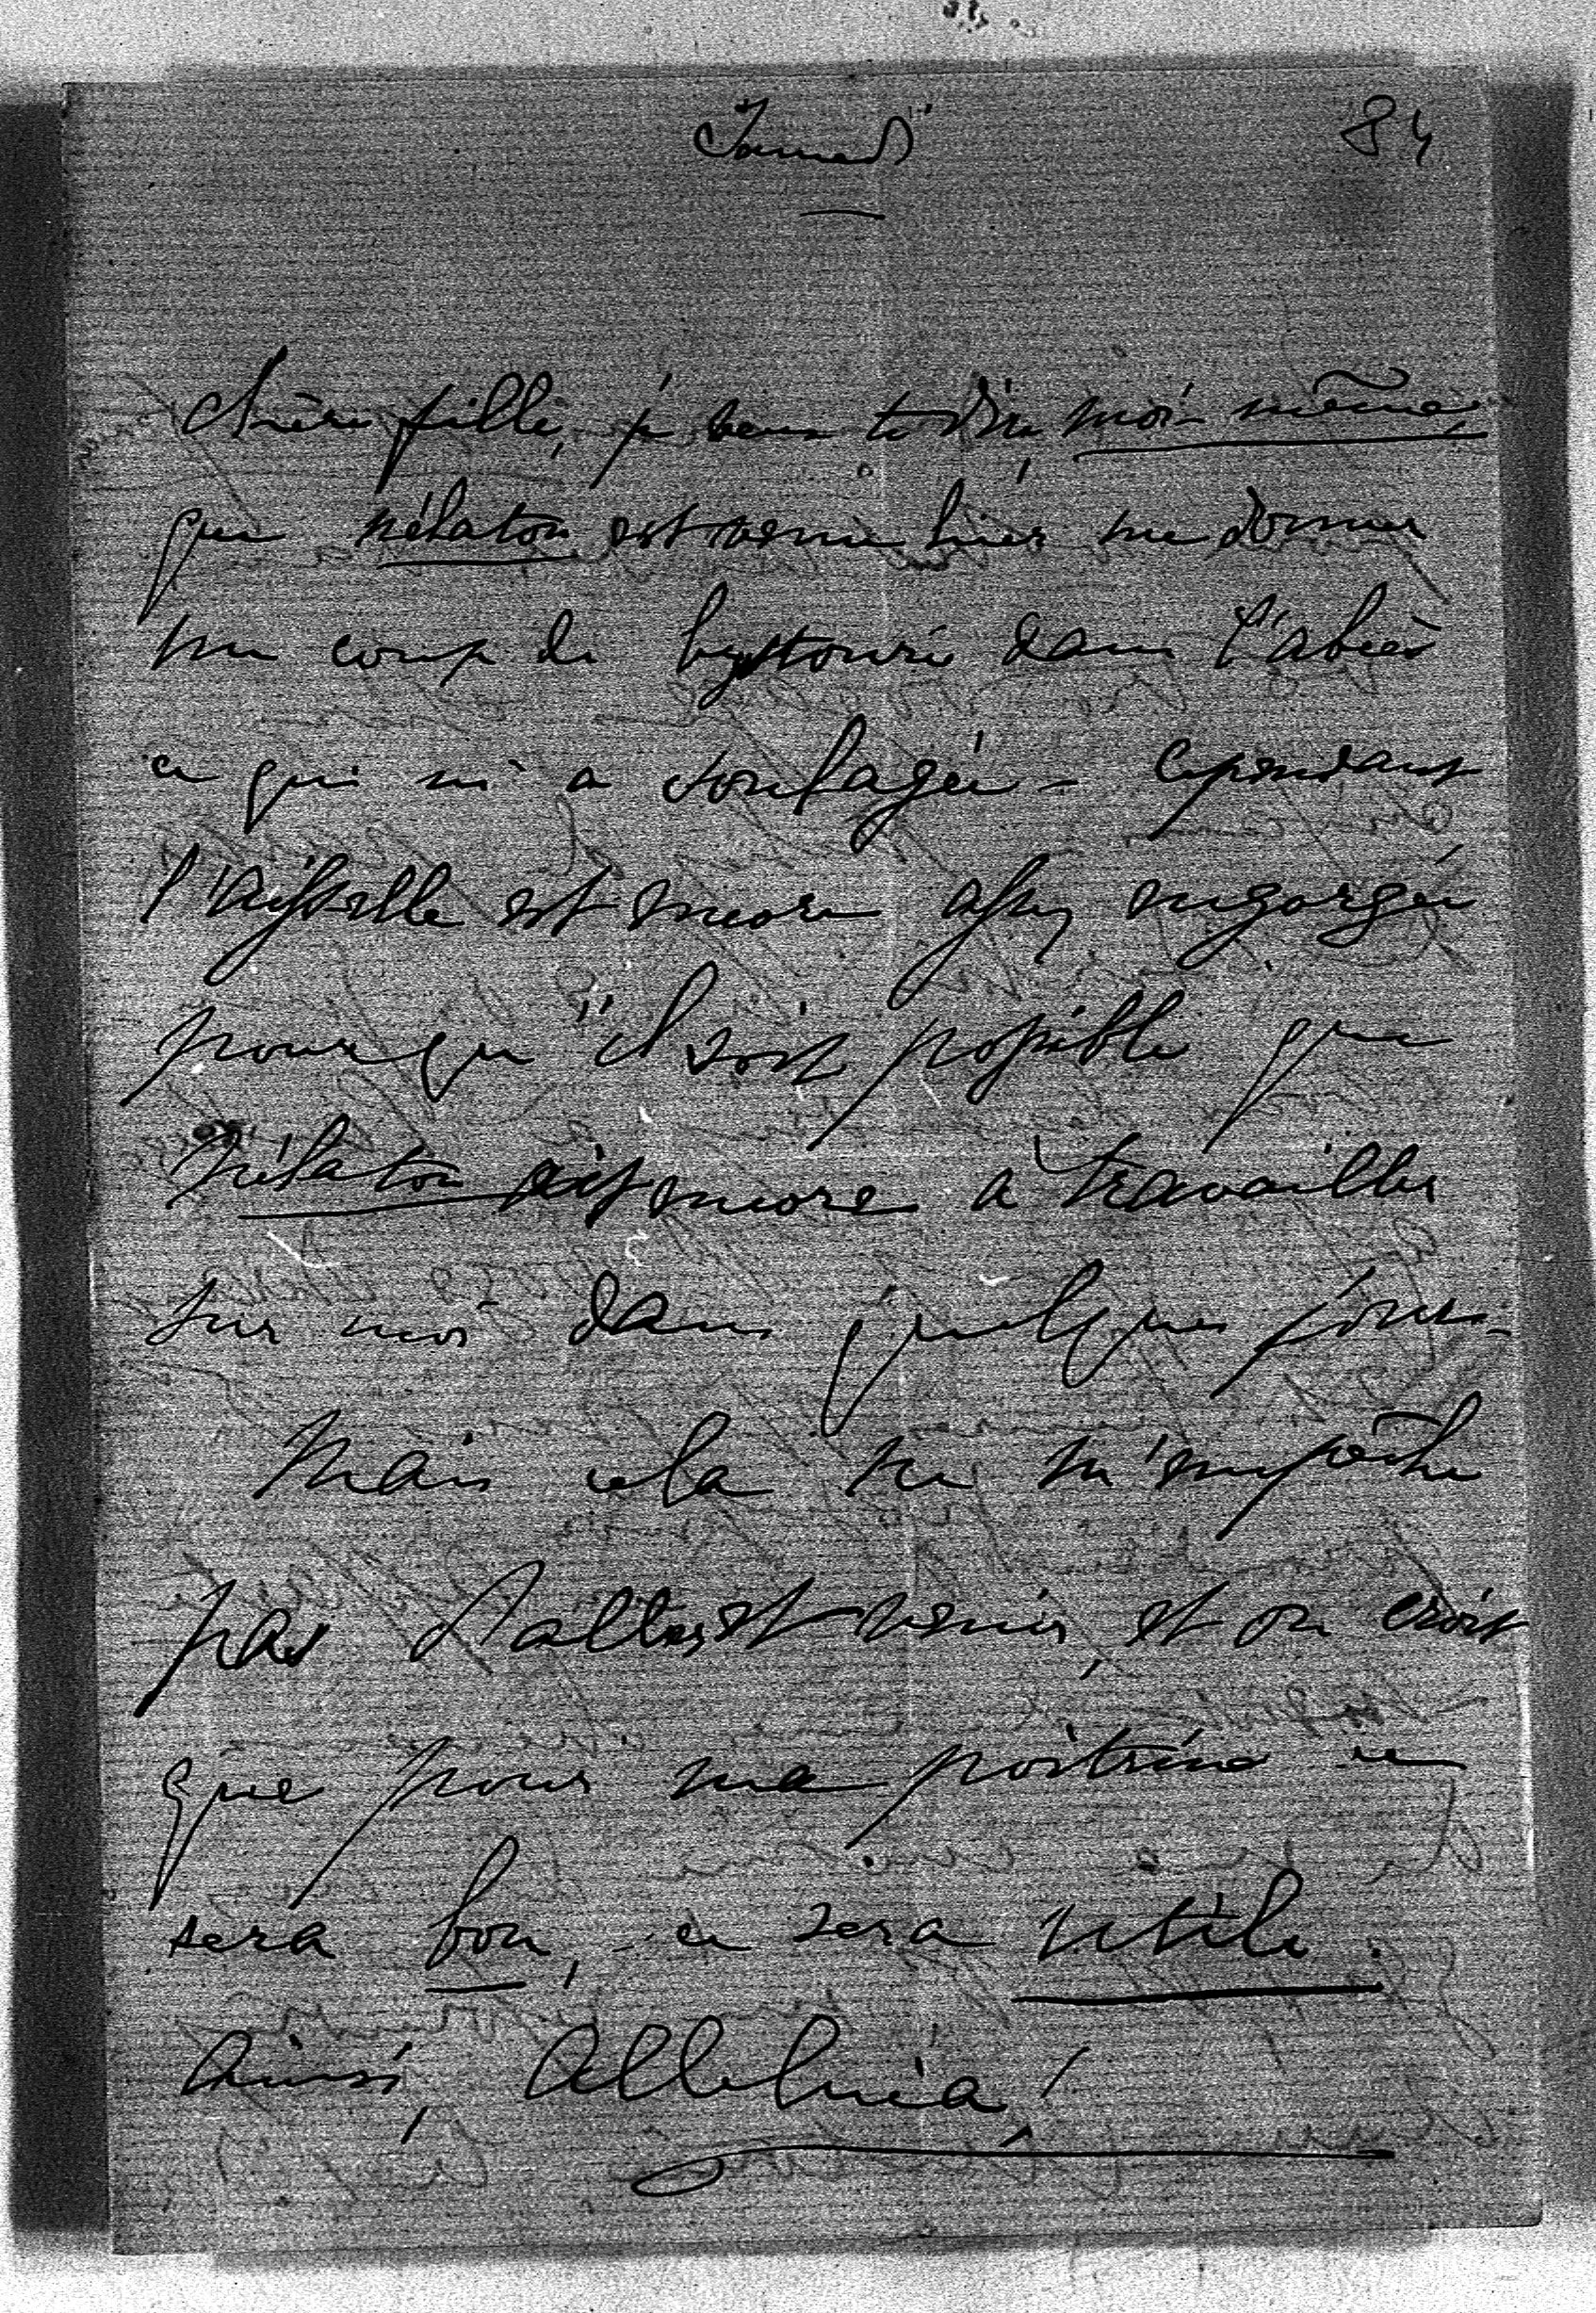 Samedi
84
Chère fille, je veux te dire moi-même,
que Nélaton est venu hier me donner
un coup de bystouri dans l'abcès
ce qui m'a soulagée - cependant
l'aisselle est encore assez engorgée
pour qu'il soit possible que
Nélaton ait encore à travailler
sur moi dans quelques jours -
Mais cela ne m'empêche
pas d'aller et venir, et on croit
que pour ma poitrine ce
sera bon, - ce sera utile.
Ainsi, Alleluia!